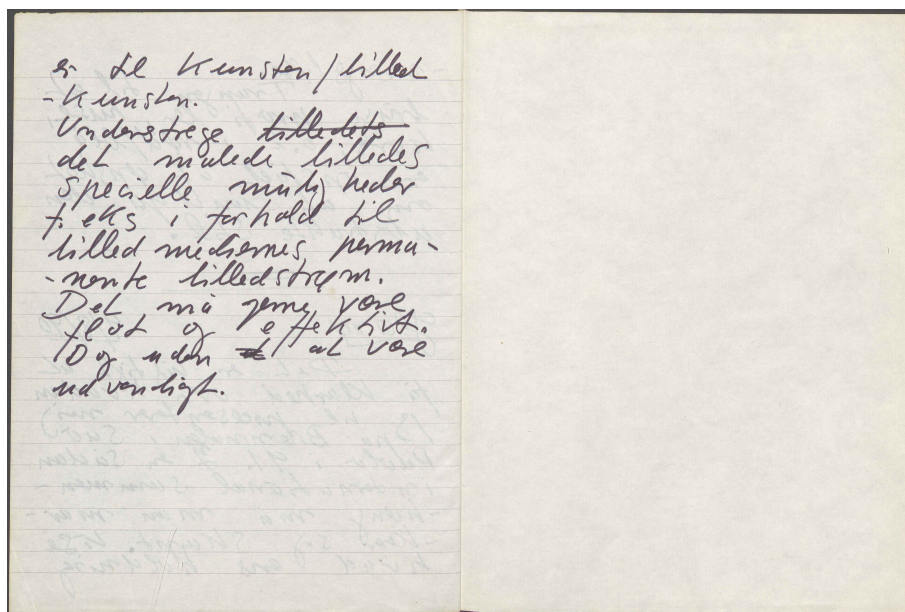 er til Kunsten/billed
-kunsten.
Understrege billedets
det malede billedes
specielle muligheder
f. eks i forhold til
billedmediernes perma-
-nente billedstrøm.
Det må gerne være
flot og effektivt.
Dog uden at at være
udvendigt.